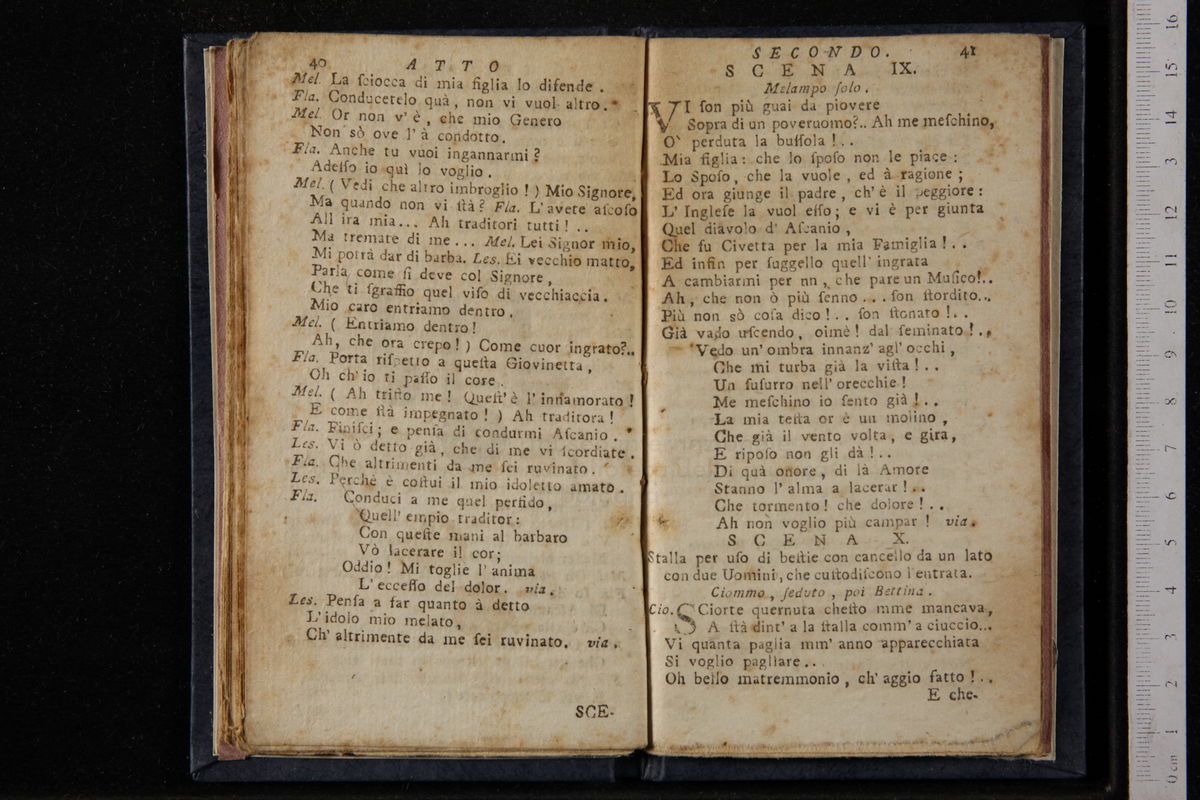 40 A T T O
Mel. La ſciocca di mia figlia lo difende.
Fla. Conducetelo quà, non vi vuol altro.
Mel. Or non v'è, che mio Genero
Non sò ove l'à condotto.
Fla. Anche tu vuoi ingannarmi?
Adeſſo io quì lo voglio.
Mel. ( Vedi che altro imbroglio! ) Mio Signore,
Ma quando non vi ſtà? Fla. L'avete aſcoſo
All ira mia... Ah traditori tutti!..
Ma tremate di me... Mel. Lei Signor mio,
Mi potrà dar di barba. Les. Ei vecchio matto,
Parla come ſi deve col Signore,
Che ti ſgraffio quel viſo di vecchiaccia.
Mio caro entriamo dentro.
Mel. ( Entriamo dentro!
Ah, che ora crepo! ) Come cuor ingrato?..
Fla. Porta riſpetto a queſta Giovinetta,
Oh ch'io ti paſſo il core.
Mel. ( Ah triſto me! Queſt'è l'innamorato!
E come ſtà impegnato! ) Ah traditora!
Fla. Finiſci; e penſa di condurmi Aſcanio.
Les. Vi ò detto già, che di me vi ſcordiate.
Fla. Che altrimenti da me ſei ruvinato.
Les. Perchè è coſtui il mio idoletto amato.
Fla. Conduci a me quel perfido,
Quell'empio traditor:
Con queſte mani al barbaro
Vò lacerare il cor;
Oddio! Mi toglie l'anima
L'ecceſſo del dolor. via.
Les. Penſa a far quanto à detto
L'idolo mio melato,
Ch'altrimente da me ſei ruvinato. via.
SCE-
SECONDO. 41
S C E N A IX.
Melampo ſolo.
VI ſon più guai da piovere
Sopra di un poveruomo?.. Ah me meſchino,
O' perduta la buſſola!..
Mia figlia: che lo ſpoſo non le piace:
Lo Spoſo, che la vuole, ed à ragione;
Ed ora giunge il padre, ch'è il peggiore:
L'Ingleſe la vuol eſſo; e vi è per giunta
Quel diavolo d'Aſcanio,
Che fu Civetta per la mia Famiglia!..
Ed infin per ſuggello quell'ingrata
A cambiarmi per nn, che pare un Muſico!..
Ah, che non ò più ſenno... ſon ſtordito...
Più non sò coſa dico!.. ſon ſtonato!..
Già vado uſcendo, oimè! dal ſeminato!..
Vedo un'ombra innanz'agl'occhi,
Che mi turba già la viſta!..
Un ſuſurro nell'orecchie!
Me meſchino io ſento già!..
La mia teſta or è un molino,
Che già il vento volta, e gira,
E ripoſo non gli dà!..
Di quà onore, di là Amore
Stanno l'alma a lacerar!..
Che tormento! che dolore!..
Ah non voglio più campar! via.
S C E N A X.
Stalla per uſo di beſtie con cancello da un lato
con due Uomini, che cuſtodiſcono l'entrata.
Ciommo, ſeduto, poi Bettina.
Cio. SCiorte quernuta cheſto mme mancava,
A ſtà dint'a la ſtalla comm'a ciuccio...
Vi quanta paglia mm'anno apparecchiata
Si voglio pagliare..
Oh bello matremmonio, ch'aggio fatto!..
E che-
0 cm 1 2 3 4 5 6 7 8 9 10 11 12 13 14 15 16